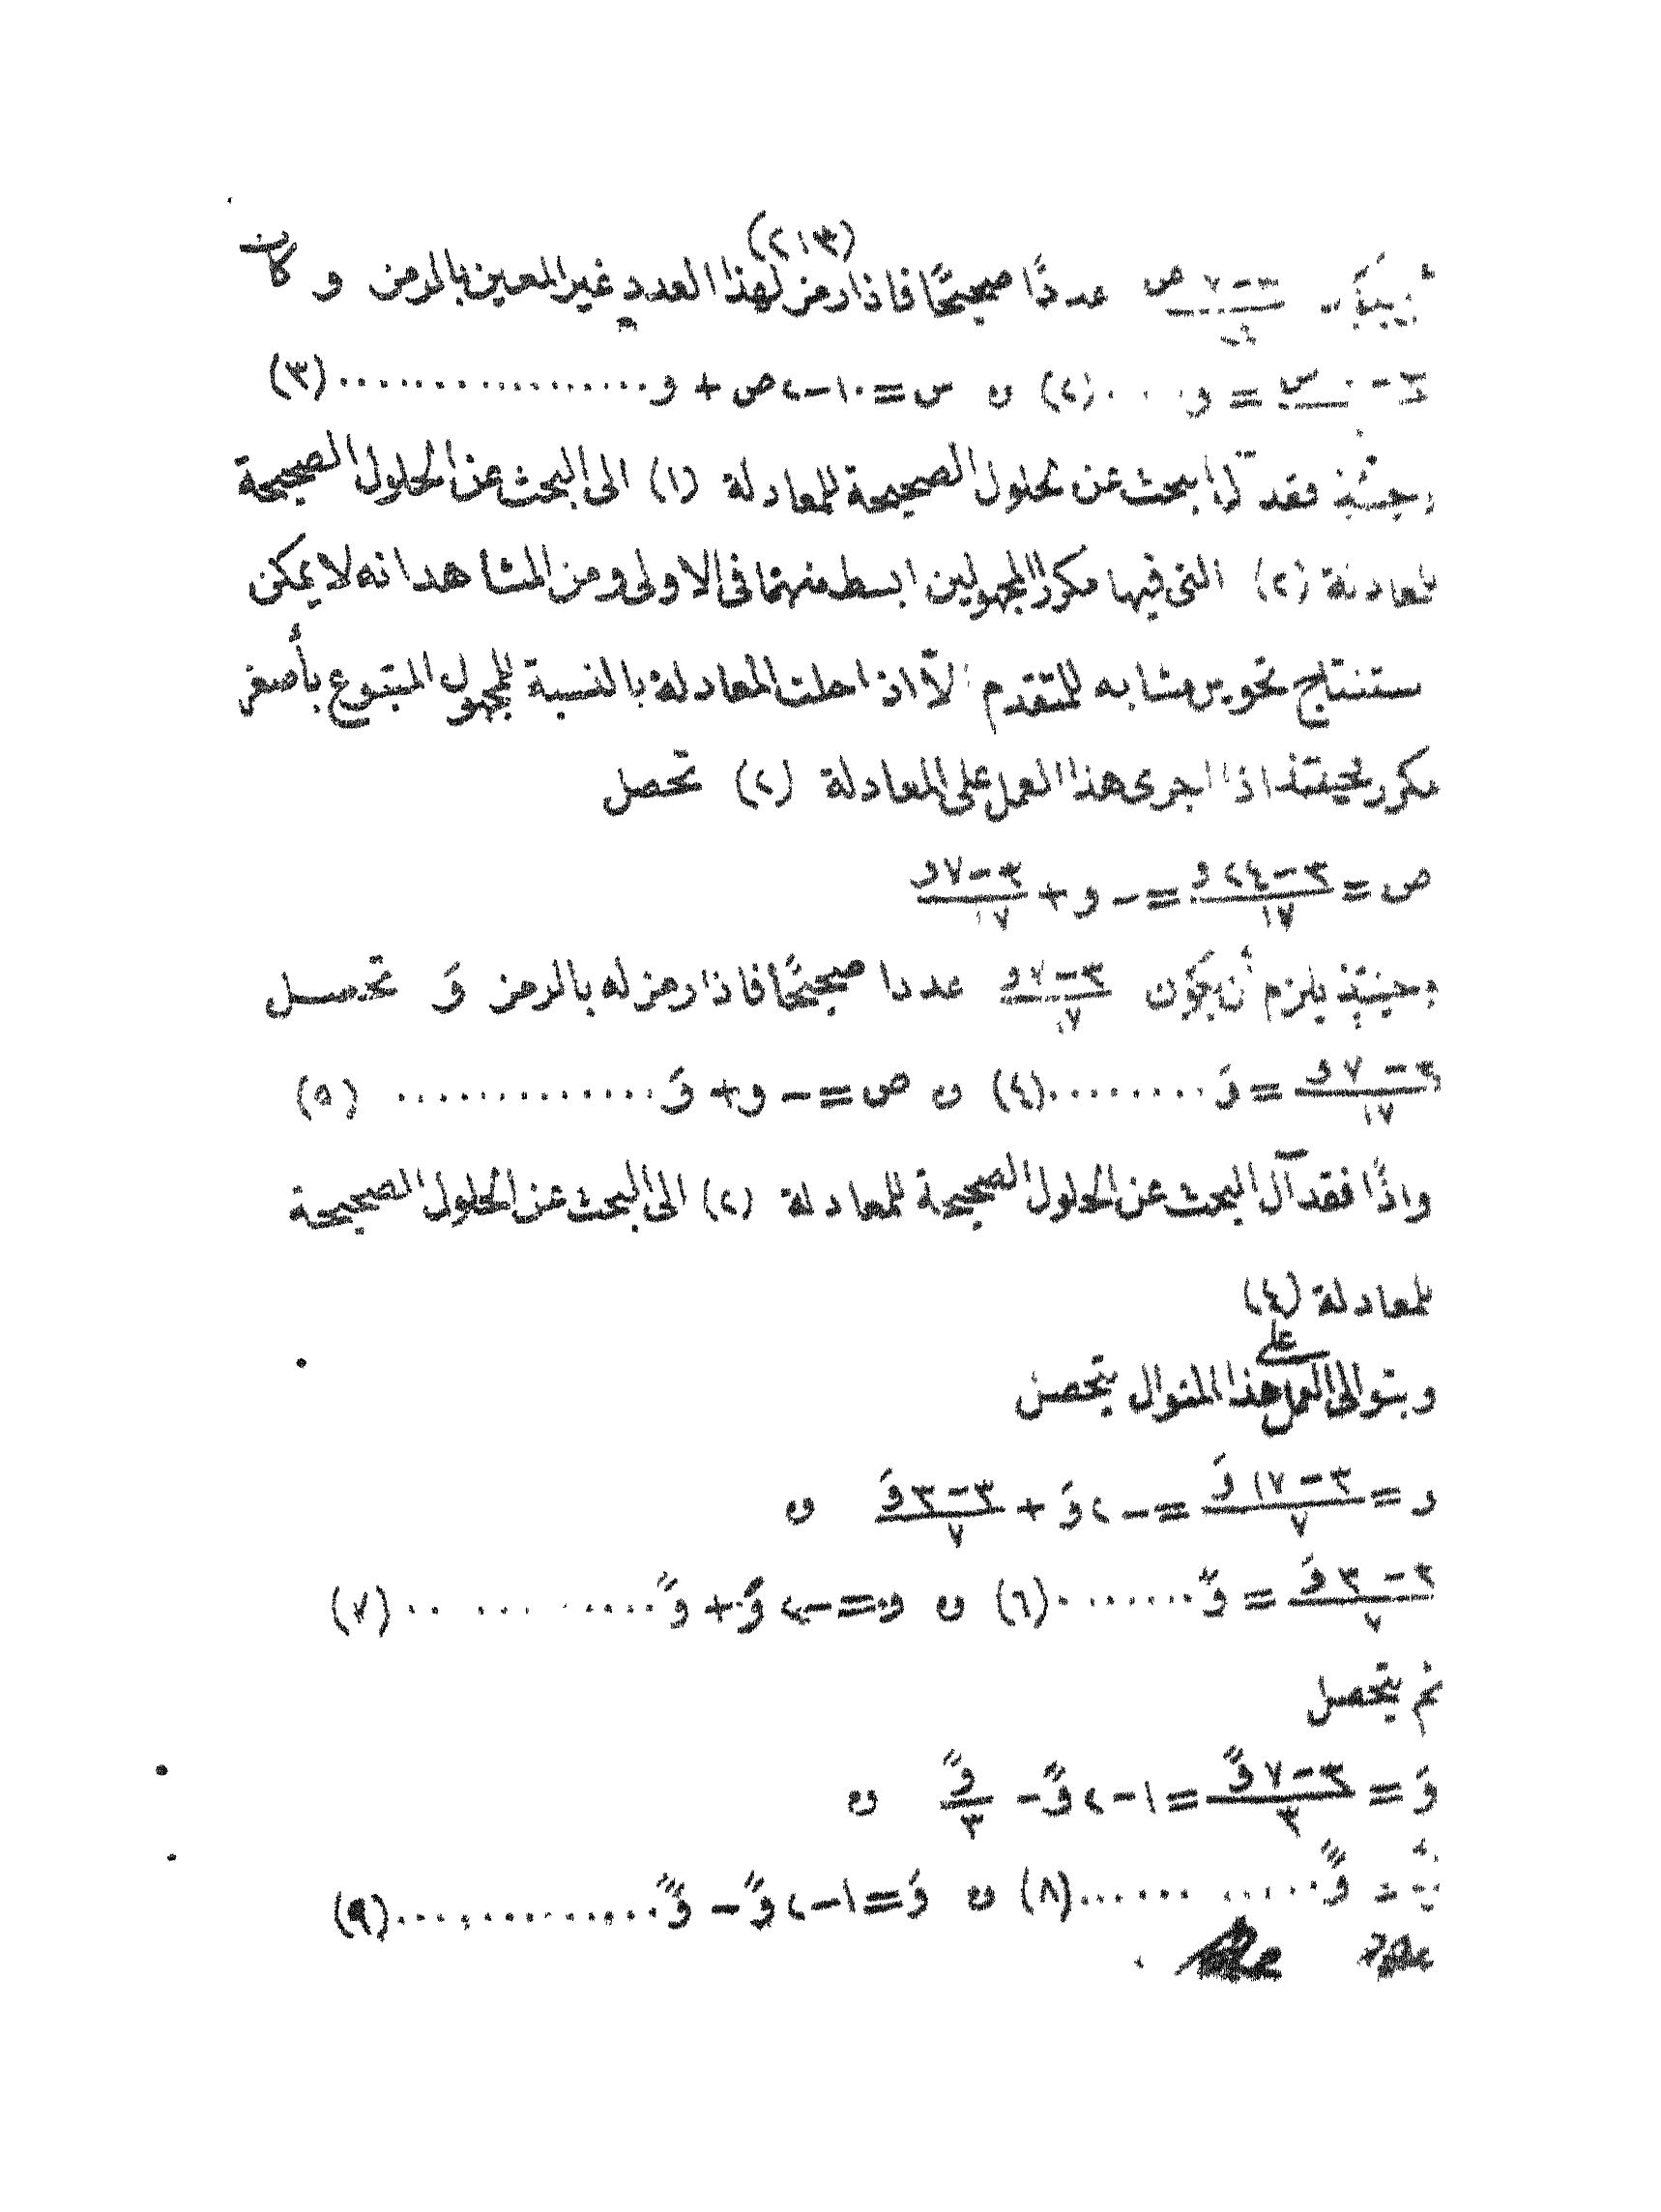 (٢١٣)
عددًا صحيحًا فاذا رمز لهذا العدد غير المعين بالرمز و كان
= و ....(٢) ن س = ١٠ - ٢ص + و ..................(٣)
فقد آل البحث عن الحلول الصحيحة للمعادلة (١) الى البحث عن الحلول الصحيحة
للمعادلة (٢) التى فيها مكررا المجهولين ابسط منهما فى الاولى ومن المشاهد انه لا يمكن
ستنتاج تحوير مشابه للمتقدم الّا اذا حلت المعادلة بالنسبة للمجهول المتبوع بأصغر
مكرر فحينئذ اذا اجرى هذا العمل على المعادلة (٢) تحصل
ص = (٣-٢٤و)/١٧ = - و + (٣-٧و)/١٧
وحينئذ يلزم أن يكون (٣-٧و)/١٧ عددا صحيحًا فاذا رمز له بالرمز وَ تحصل
(٣-٧و)/١٧ = وَ ........(٤) ن ص = - و + وَ ............. (٥)
واذًا فقد آل البحث عن الحلول الصحيحة للمعادلة (٢) الى البحث عن الحلول الصحيحة
للمعادلة (٤)
وبتوالى العمل على هذا المنوال يتحصل
و = (٣-١٧وَ)/٧ = - ٢وَ + (٣-٣وَ)/٧ ن
(٣-٣وَ)/٧ = وً .......(٦) ن و = - ٢وَ + وً ........... (٧)
ثم يتحصل
وَ = (٣-٧وً)/٣ = ١ - ٢وً - وً/٣ ن
= و‴ ...........(٨) ن وَ = ١ - ٢وً - و‴ .............(٩)